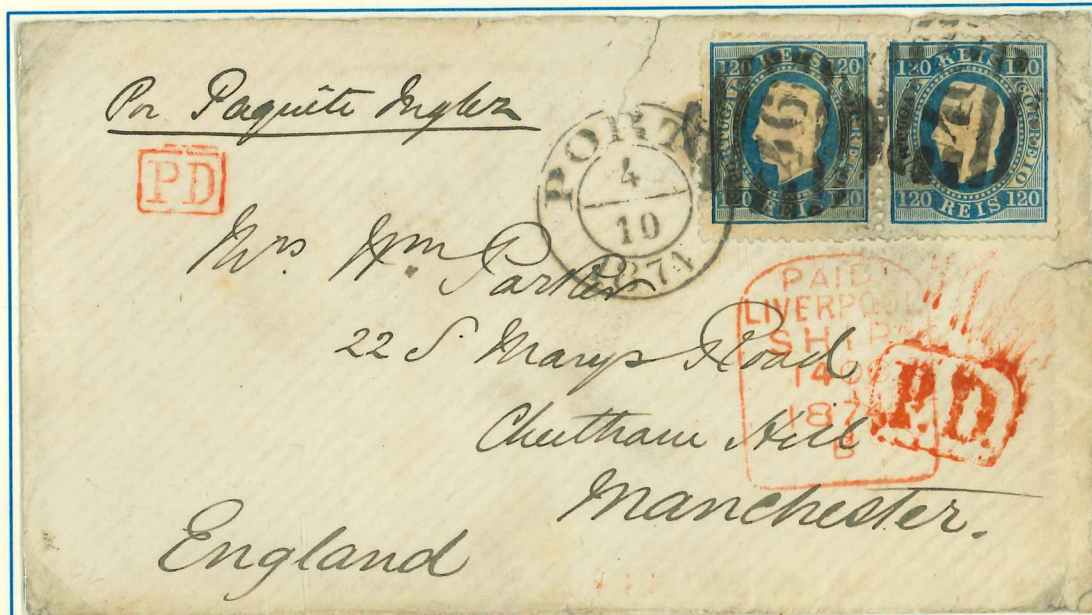 Por Paquête Inglez
PD
PORTO
4
10
1874
120 REIS 120
PORTUGAL CORREIO
120 REIS 120
46
120 REIS 120
PORTUGAL CORREIO
120 REIS 120
Mrs. Wm Parker
22 S. Marys Road
Cheetham Hill
Manchester.
England
PAID
LIVERPOOL
SHIP
14 OC
1874
B
P.D.